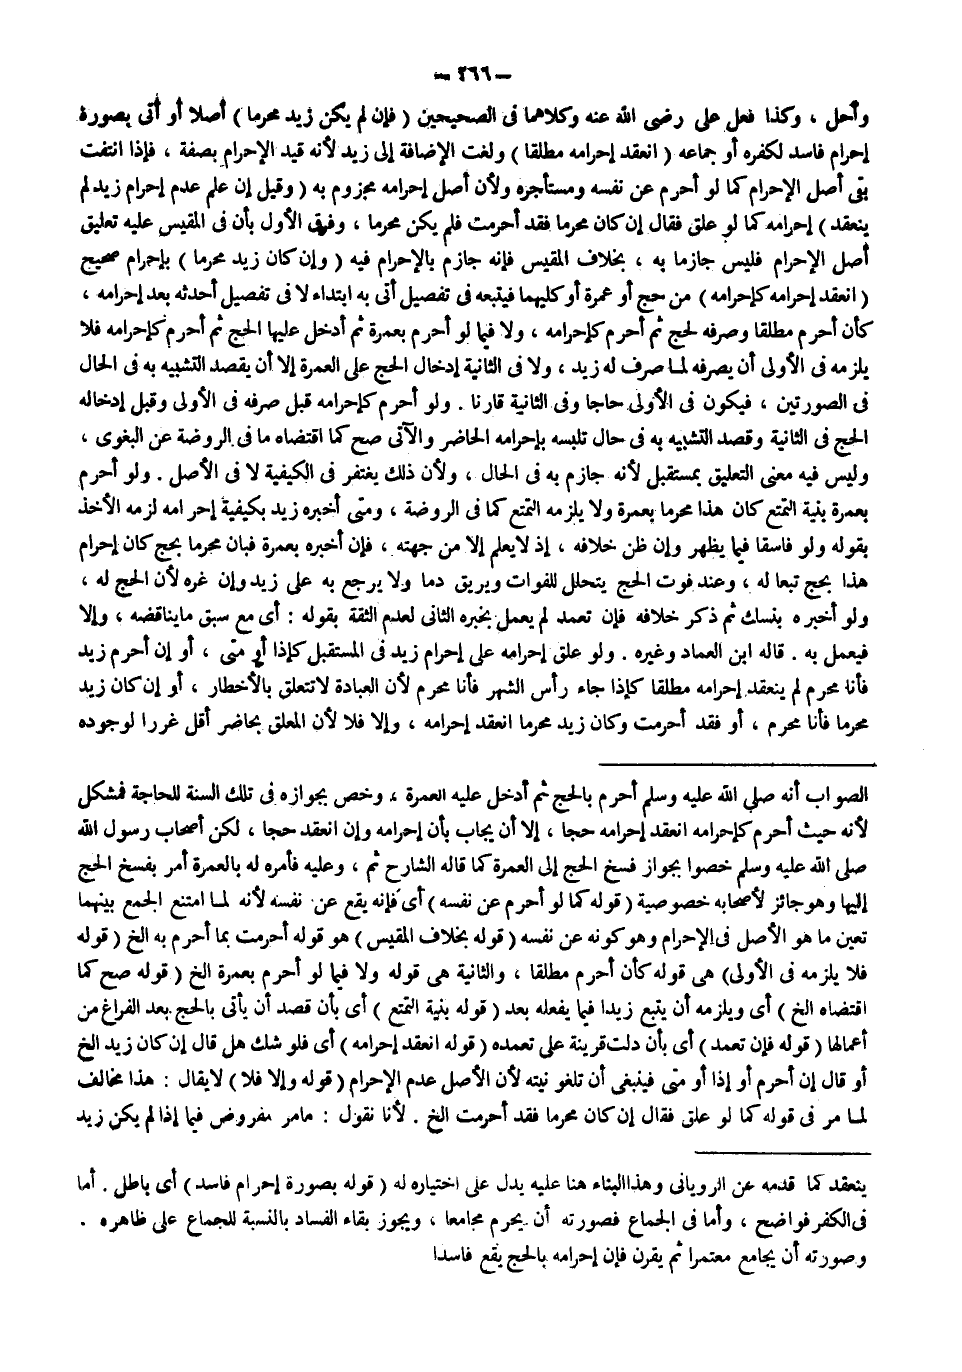 — ٢٦٦ —
وأحل ، وكذا فعل على رضى الله عنه وكلاهما فى الصحيحين ( فإن لم يكن زيد محرما ) أصلا أو أتى بصورة
إحرام فاسد لكفره أو جماعه ( انعقد إحرامه مطلقا ) ولغت الإضافة إلى زيد لأنه قيد الإحرام بصفة ، فإذا انتفت
بقى أصل الإحرام كما لو أحرم عن نفسه ومستأجره ولأن أصل إحرامه مجزوم به ( وقيل إن علم عدم إحرام زيد لم
ينعقد ) إحرامه كما لو علق فقال إن كان محرما فقد أحرمت فلم يكن محرما ، وفرق الأول بأن فى المقيس عليه تعليق
أصل الإحرام فليس جازما به ، بخلاف المقيس فإنه جازم بالإحرام فيه ( وإن كان زيد محرما ) بإحرام صحيح
( انعقد إحرامه كإحرامه ) من حج أو عمرة أو كليهما فيتبعه فى تفصيل أتى به ابتداء لا فى تفصيل أحدثه بعد إحرامه ،
كأن أحرم مطلقا وصرفه لحج ثم أحرم كإحرامه ، ولا فيما لو أحرم بعمرة ثم أدخل عليها الحج ثم أحرم كإحرامه فلا
يلزمه فى الأولى أن يصرفه لما صرف له زيد ، ولا فى الثانية إدخال الحج على العمرة إلا أن يقصد التشبيه به فى الحال
فى الصورتين ، فيكون فى الأولى حاجا وفى الثانية قارنا . ولو أحرم كإحرامه قبل صرفه فى الأولى وقبل إدخاله
الحج فى الثانية وقصد التشبيه به فى حال تلبسه بإحرامه الحاضر والآتى صح كما اقتضاه ما فى الروضة عن البغوى ،
وليس فيه معنى التعليق بمستقبل لأنه جازم به فى الحال ، ولأن ذلك يغتفر فى الكيفية لا فى الأصل . ولو أحرم
بعمرة بنية التمتع كان هذا محرما بعمرة ولا يلزمه التمتع كما فى الروضة ، ومتى أخبره زيد بكيفية إحرامه لزمه الأخذ
بقوله ولو فاسقا فيما يظهر وإن ظن خلافه ، إذ لايعلم إلا من جهته ، فإن أخبره بعمرة فبان محرما بحج كان إحرام
هذا بحج تبعا له ، وعند فوت الحج يتحلل للفوات ويريق دما ولا يرجع به على زيد وإن غره لأن الحج له ،
ولو أخبره بنسك ثم ذكر خلافه فإن تعمد لم يعمل بخبره الثانى لعدم الثقة بقوله : أى مع سبق مايناقضه ، وإلا
فيعمل به . قاله ابن العماد وغيره . ولو علق إحرامه على إحرام زيد فى المستقبل كإذا أو متى ، أو إن أحرم زيد
فأنا محرم لم ينعقد إحرامه مطلقا كإذا جاء رأس الشهر فأنا محرم لأن العبادة لاتتعلق بالأخطار ، أو إن كان زيد
محرما فأنا محرم ، أو فقد أحرمت وكان زيد محرما انعقد إحرامه ، وإلا فلا لأن المعلق بحاضر أقل غررا لوجوده
الصواب أنه صلى الله عليه وسلم أحرم بالحج ثم أدخل عليه العمرة ، وخص بجوازه فى تلك السنة للحاجة فمشكل
لأنه حيث أحرم كإحرامه انعقد إحرامه حجا ، إلا أن يجاب بأن إحرامه وإن انعقد حجا ، لكن أصحاب رسول الله
صلى الله عليه وسلم خصوا بجواز فسخ الحج إلى العمرة كما قاله الشارح ثم ، وعليه فأمره له بالعمرة أمر بفسخ الحج
إليها وهو جائز لأصحابه خصوصية ( قوله كما لو أحرم عن نفسه ) أى فإنه يقع عن نفسه لأنه لما امتنع الجمع بينهما
تعين ما هو الأصل فى الإحرام وهو كونه عن نفسه ( قوله بخلاف المقيس ) هو قوله أحرمت بما أحرم به الخ ( قوله
فلا يلزمه فى الأولى) هى قوله كأن أحرم مطلقا ، والثانية هى قوله ولا فيما لو أحرم بعمرة الخ ( قوله صح كما
اقتضاه الخ ) أى ويلزمه أن يتبع زيدا فيما يفعله بعد ( قوله بنية التمتع ) أى بأن قصد أن يأتى بالحج بعد الفراغ من
أعمالها ( قوله فإن تعمد ) أى بأن دلت قرينة على تعمده ( قوله انعقد إحرامه ) أى فلو شك هل قال إن كان زيد الخ
أو قال إن أحرم أو إذا أو متى فينبغى أن تلغو نيته لأن الأصل عدم الإحرام ( قوله وإلا فلا ) لايقال : هذا مخالف
لما مر فى قوله كما لو علق فقال إن كان محرما فقد أحرمت الخ . لأنا نقول : مامر مفروض فيما إذا لم يكن زيد
ينعقد كما قدمه عن الرويانى وهذا البناء هنا عليه يدل على اختياره له ( قوله بصورة إحرام فاسد ) أى باطل . أما
فى الكفر فواضح ، وأما فى الجماع فصورته أن يحرم مجامعا ، ويجوز بقاء الفساد بالنسبة للجماع على ظاهره .
وصورته أن يجامع معتمرا ثم يقرن فإن إحرامه بالحج يقع فاسدا